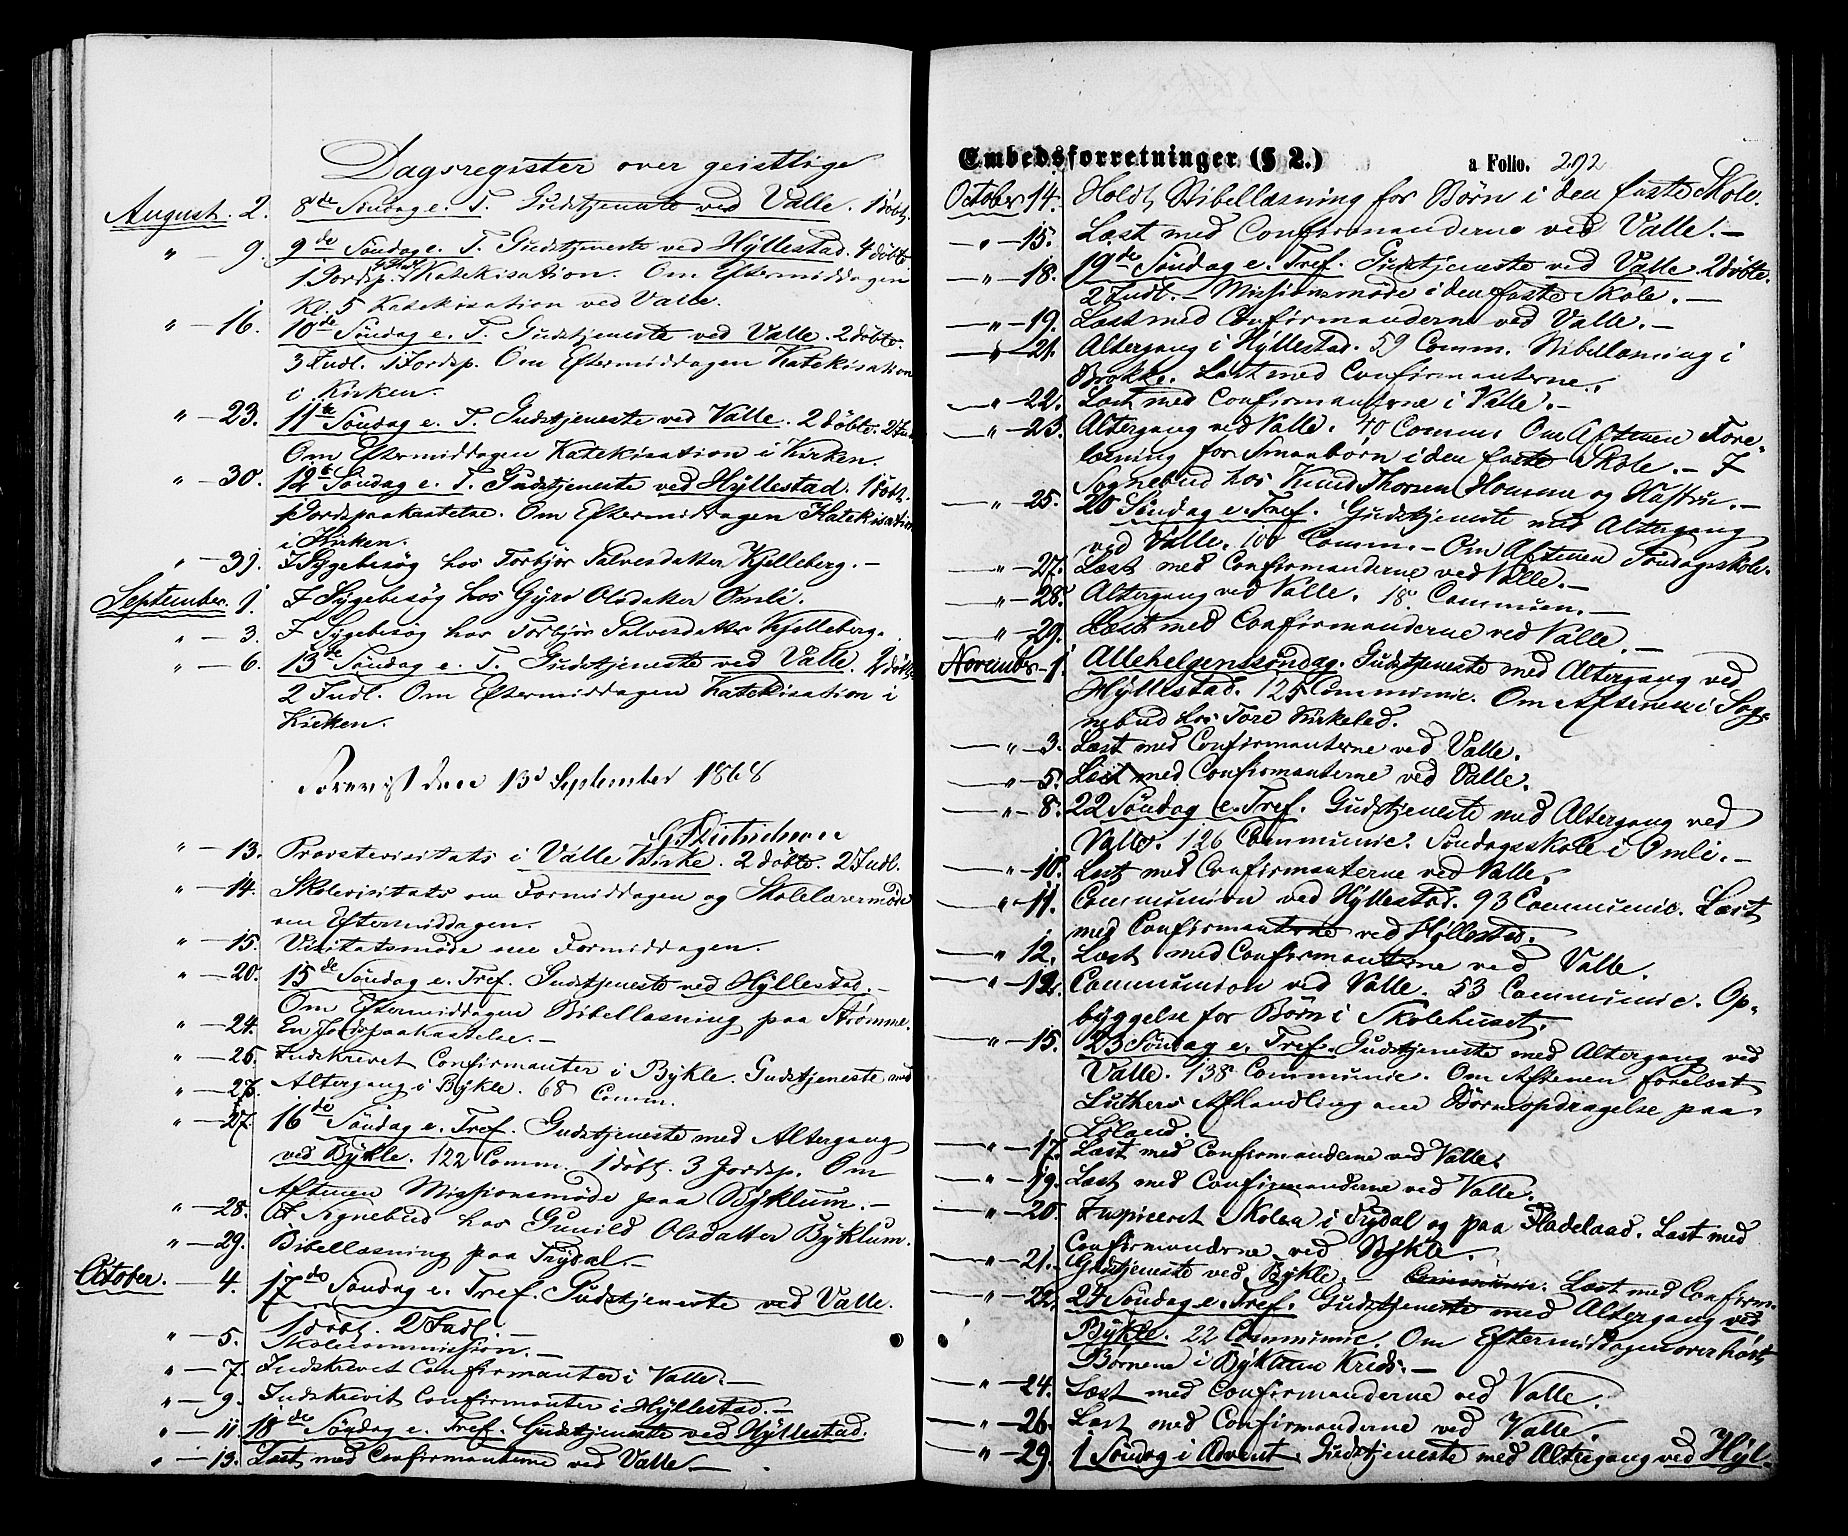 Dagsregister over geistlige
August. 2. 8de Søndag e. T. Gudstjeneste ved Valle. 1 døbt.
" — 9. 9de Søndag e. T. Gudstjeneste ved Hyllestad. 4 døbte.
1 Jordsp. Katekisation. Om Eftermiddagen
Kl. 5 Katekisation ved Valle.
" — 16. 10de Søndag e. T. Gudstjeneste ved Valle. 2 døbte.
3 Indl. 1 Jordsp. Om Eftermiddagen Katekisation
i Kirken.
" — 23. 11te Søndag e. T. Gudstjeneste ved Valle. 2 døbte. 2 Indl.
Om Eftermiddagen Katekisation i Kirken.
" — 30. 12te Søndag e. T. Gudstjeneste ved Hyllestad. 1 døbt.
1 Jordspaakastelse. Om Eftermiddagen Katekisation
i Kirken.
" — 31. I Sygebesøg hos Torbjør Salvesdatter Kjelleberg. —
September. 1. I Sygebesøg hos Gyro Olsdatter Omli.
" — 3. I Sygebesøg hos Torbjør Salvesdatter Kjelleberg.
" — 6. 13de Søndag e. T. Gudstjeneste ved Valle. 2 døbte.
2 Indl. Om Eftermiddagen Katekisation i
Kirken.
Forevist den 13d September 1868
" — 13. Provstevisitats i Valle Kirke. 2 døbte. 2 Indl.
" — 14. Skolevisitats om Formiddagen og Skolelærermøde
om Eftermiddagen.
" — 15. Visitatsmøde om Formiddagen.
" — 20. 15de Søndag e. Tref. Gudstjeneste ved Hyllestad. —
Om Eftermiddagen Bibellæsning paa Strømme.
" — 24. En Jordspaakastelse. —
" — 26. Indskrevet Confirmanter i Bykle. Gudstjeneste med
" — 27. Altergang i Bykle. 68 Comm.
" — 27. 16de Søndag e. Tref. Gudstjeneste med Altergang
ved Bykle. 122 Comm. 1 døbt. 3 Jordsp. Om
Aftenen Missionsmøde paa Byklum. —
" — 28. I Sognebud hos Gunild Olsdatter Byklum.
" — 29. Bibellæsning paa Trydal. —
October. — 4. 17de Søndag e. Tref. Gudstjeneste ved Valle.
1 døbt. 2 Indl. —
" — 5. Skolecommission. —
" — 7. Indskrevet Confirmanter i Valle. —
" — 9. Indskrevet Confirmanter i Hyllestad. —
" — 11. 18de Søndag e. Tref. Gudstjeneste ved Hyllestad.
" — 13. Læst med Confirmanterne ved Valle. —
Embedsforretninger (§ 2.) a Folio. 202
October 14. Holdt Bibellæsning for Børn i den faste Skole.
— " — 15. Læst med Confirmanderne ved Valle. —
— " — 18. 19de Søndag e. Tref. Gudstjeneste ved Valle. 2 døbte.
2 Indl. — Missionsmøde i den faste Skole. —
— " — 19. Læst med Confirmanderne ved Valle. —
— " — 21. Altergang i Hyllestad. 59 Comm. Bibellæsning i
Brokke. Læst med Confirmanterne.
— " — 22. Læst med Confirmanterne i Valle. —
— " — 23. Altergang ved Valle. 40 Comm. Om Aftenen Fore-
læsning for Smaabørn i den faste Skole. — I
Sognebud hos Knud Thorsen Homme og Hustru. —
— " — 25. 20 Søndag e. Tref. Gudstjeneste med Altergang
ved Valle. 100 Comm. — Om Aftenen Søndagsskole.
— " — 27. Læst med Confirmanderne ved Valle. —
— " — 28. Altergang ved Valle. 18 Commun. —
— " — 29. Læst med Confirmanderne ved Valle. —
November — 1. Allehelgenssøndag. Gudstjeneste med Altergang ved
Hyllestad. 125 Communic. Om Aftenen i Sog-
nebud hos Tore Kirkebed.
— " — 3. Læst med Confirmanterne ved Valle.
— " — 5. Læst med Confirmanterne ved Valle.
— " — 8. 22 Søndag e. Tref. Gudstjeneste med Altergang ved
Valle. 126 Communic. Søndagsskole i Omli. —
— " — 10. Læst med Confirmanterne ved Valle.
— " — 11. Communion ved Hyllestad. 93 Communic. Læst
med Confirmanterne ved Hyllestad.
— " 12. Læst med Confirmanterne ved Valle.
— " — 12. Communion ved Valle. 53 Communic. Op-
byggelse for Børn i Skolehuset.
— " — 15. 23 Søndag e. Tref. Gudstjeneste med Altergang ved
Valle. 138 Communic. Om Aftenen forelæst
Luthers Afhandling om Børneopdragelse paa
Løland.
— " — 17. Læst med Confirmanderne ved Valle.
— " — 19. Læst med Confirmanderne ved Valle.
— " — 20. Inspiceret Skolen i Trydal og paa Fladeland. Læst med
Confirmanderne ved Bykle.
— " — 21. Gudstjeneste ved Bykle. — Communic. Læst med Confirm.
— " — 22. 24 Søndag e. Tref. Gudstjeneste med Altergang ved
Bykle. 22 Communic. Om Eftermiddagen overhørt
Børnene i Byklum Kreds. —
— " — 24. Læst med Confirmanderne ved Valle.
— " — 26. Læst med Confirmanderne ved Valle.
— " — 29. 1 Søndag i Advent. Gudstjeneste med Altergang ved Hyl-